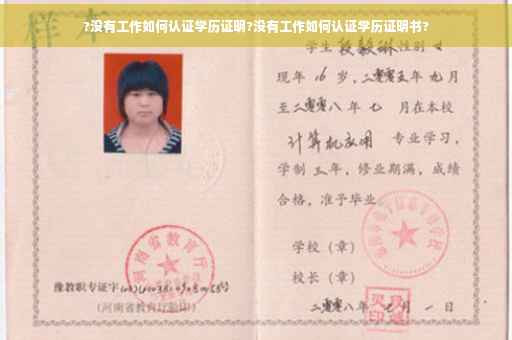 ?没有工作如何认证学历证明?没有工作如何认证学历证明书?
样本
学生 段毅琳 性别 女
现年 16 岁，二零零五年 九月
至二零零八年 七 月在本校
计算机应用 专业学习，
学制 三 年，修业期满，成绩
合格，准予毕业
学校（章）
校长（章）
二零零八年 七 月 一 日
河南省教育厅
豫教职专证字
（河南省教育厅验印）